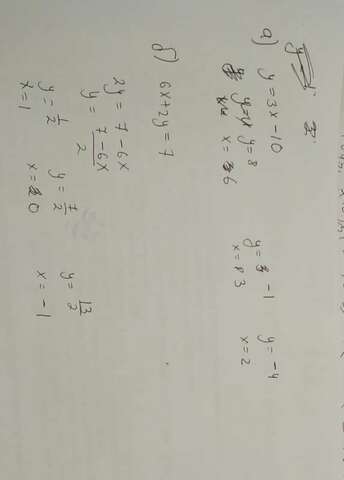 а) y = 3x - 10
y = 8 y = -1 y = -4
x = 6 x = 3 x = 2
б) 6x + 2y = 7
2y = 7 - 6x
y = \frac{7 - 6x}{2}
y = \frac{1}{2} y = \frac{7}{2} y = \frac{13}{2}
x = 1 x = 0 x = -1